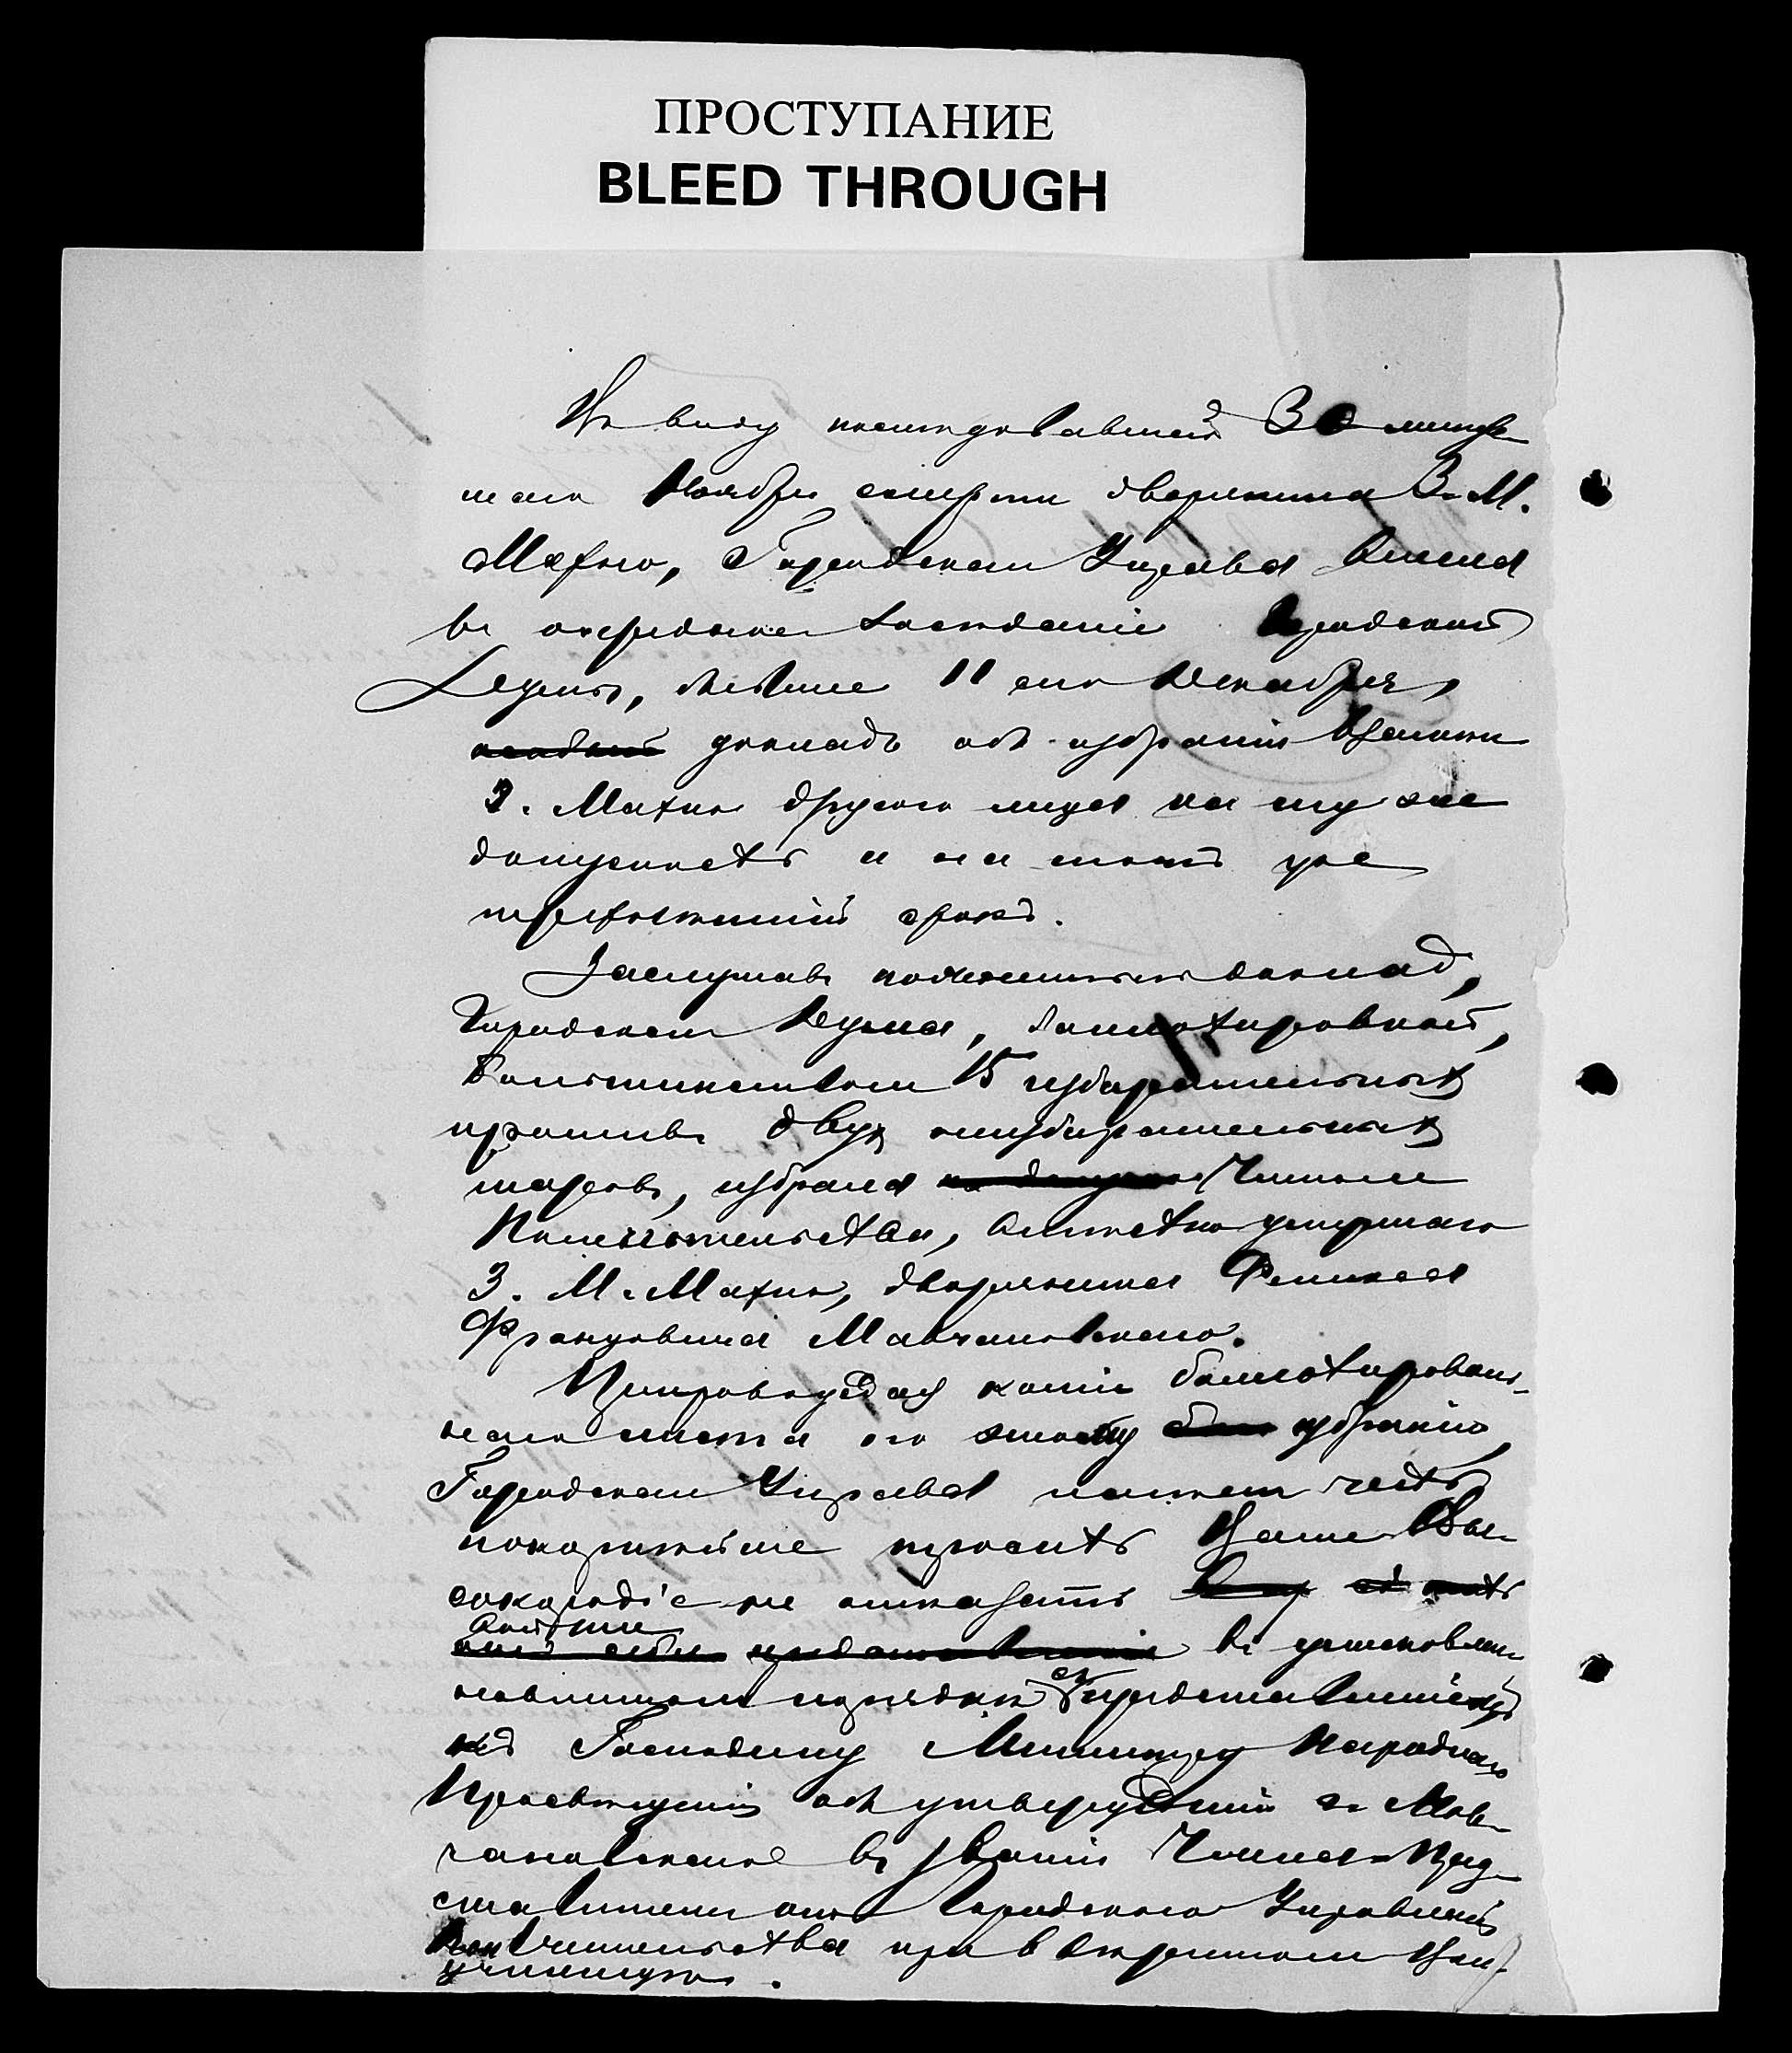 ПРОСТУПАНИЕ
BLEED THROUGH
Въ виду последовавшей 30 минув-
шаго Ноября смерти дворянина З. М.
Махно, Городская Управа внесла
въ очередное заседаніе Городской
Думы, бывшее 11 сего Декабря,
докладъ объ избраніи взамѣнъ
З. Махно другого лица на ту же
должность и на тотъ же
трехлѣтній срокъ.
Заслушавъ докладъ,
Городская Дума, баллотировкой,
большинствомъ 15 избирательныхъ
противъ двухъ неизбирательныхъ
шаровъ, избрала Членомъ
Попечительства, вмѣсто умершаго
З. М. Махно, дворянина Феликса
Францовича Мовчановскаго.
Препровождая копію баллотировоч-
наго листа по этому избранію,
Городская Управа имѣетъ честь
покорнѣйше просить Ваше Вы-
сокородіе не отказать
войти въ установлен-
порядкѣ съ представленіемъ
къ Господину Министру Народнаго
Просвѣщенія объ утвержденіи г. Мов-
чановскаго въ званіи Члена-Пред-
ставителя отъ Городского Управленія
Попечительства при
училищѣ.